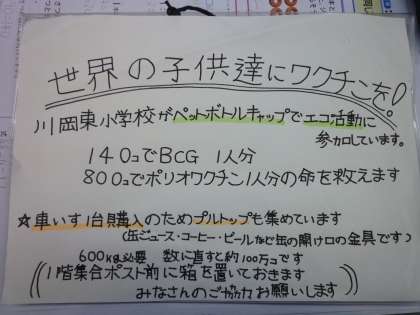 世界の子供達にワクチンを!
川岡東小学校がペットボトルキャップでエコ活動に
参加しています。
140コでBCG 1人分
800コでポリオワクチン1人分の命を救えます
☆車いす1台購入のためプルトップも集めています
(缶ジュース・コーヒー・ビールなど缶の開け口の金具です)
600kg必要 数に直すと約100万コです
1階集合ポスト前に箱を置いておきます
みなさんのご協力お願いします